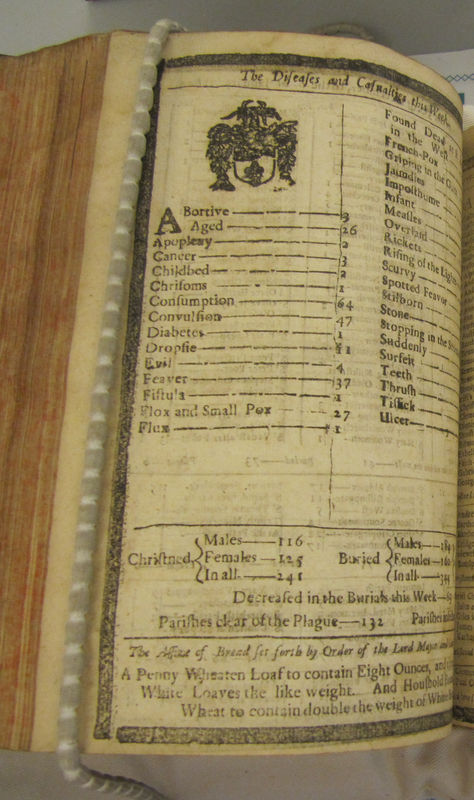 The Diseases and Casualties this Week
ABortive 3
Aged 26
Apoplexy 2
Cancer 3
Childbed 2
Chrisoms 1
Consumption 64
Convulsion 47
Diabetes 1
Dropsie
Evil 4
Feaver 37
Fistula 1
Flox and Small Pox 27
Flux 1
Found Dead
in the
French-Pox
Griping in the
Jaundies
Imposthume
Infant
Measles
Overlaid
Rickets
Rising of the Lights
Scurvy
Spotted Feavor
Stilborn
Stone
Stopping in the
Suddenly
Surfeit
Teeth
Thrush
Tissick
Ulcer
Christned
Males 116
Females 125
In all 241
Buried
Males
Females
In all
Decreased in the Burials this Week
Parishes clear of the Plague 132 Parishes
The Assize of Bread set forth by Order of the Lord Mayor and
A Penny Wheaten Loaf to contain Eight Ounces, and
White Loaves the like weight. And Houshold
Wheat to contain double the weight of